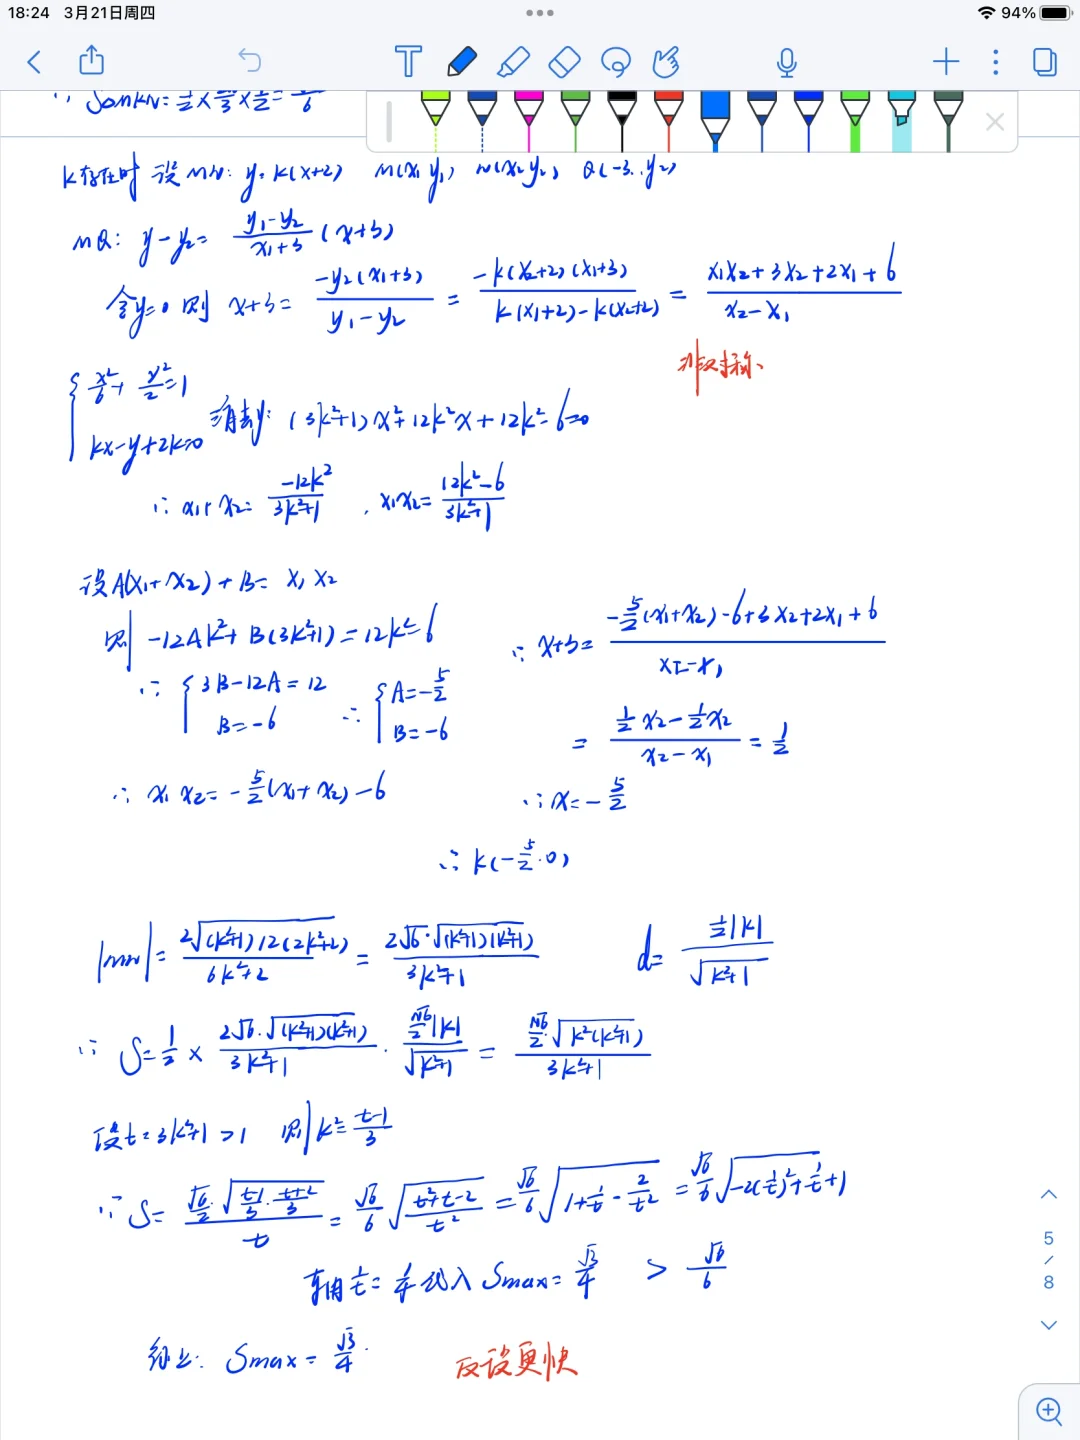 18:24 3月21日周四
94%
∴ S△MKN = 1/2 × × =
K存在时 设MN: y=k(x+2) M(x₁ y₁) N(x₂ y₂) Q(-3, y₂)
MQ: y-y₂= (y₁-y₂)/(x₁+3) (x+3)
令y=0 则 x+3= -y₂(x₁+3)/(y₁-y₂) = -k(x₂+2)(x₁+3)/(k(x₁+2)-k(x₂+2)) = (x₁x₂+3x₂+2x₁+6)/(x₂-x₁)
非对称
{ x²/6+y²/2=1
kx-y+2k=0 消去y: (3k²+1)x²+12k²x+12k²-6=0
∴ x₁+x₂= -12k²/(3k²+1) , x₁x₂= (12k²-6)/(3k²+1)
设A(x₁+x₂)+B= x₁x₂
则 -12Ak²+B(3k²+1)=12k²-6
∴ { 3B-12A=12
B=-6 ∴ { A=-5/2
B=-6
∴ x₁x₂= -5/2(x₁+x₂)-6
∴ x+3= (-5/2(x₁+x₂)-6+3x₂+2x₁+6)/(x₂-x₁)
= (1/2 x₂-1/2 x₂)/(x₂-x₁) = 1/2
∴ x=-5/2
∴ K(-5/2, 0)
|MN|= 2√((k²+1)12(2k²+2))/(6k²+2) = 2√6·√((k²+1)(k²+1))/(3k²+1) d= 1/2|k|/√(k²+1)
∴ S=1/2 × 2√6·√((k²+1)(k²+1))/(3k²+1) · √6/2|k|/√(k²+1) = √6/2·√(k²(k²+1))/(3k²+1)
设t=3k²+1>1 则k²=(t-1)/3
∴ S= √6/2·√((t-1)/3·(t+2)/3)/t = √6/6 √((t²+t-2)/t²) = √6/6 √(1+1/t-2/t²) = √6/6 √(-2(1/t)²+1/t+1)
当1/t=1/4代入 Smax=√3/4 > √6/6
综上: Smax=√3/4.
反设更快
5
/
8